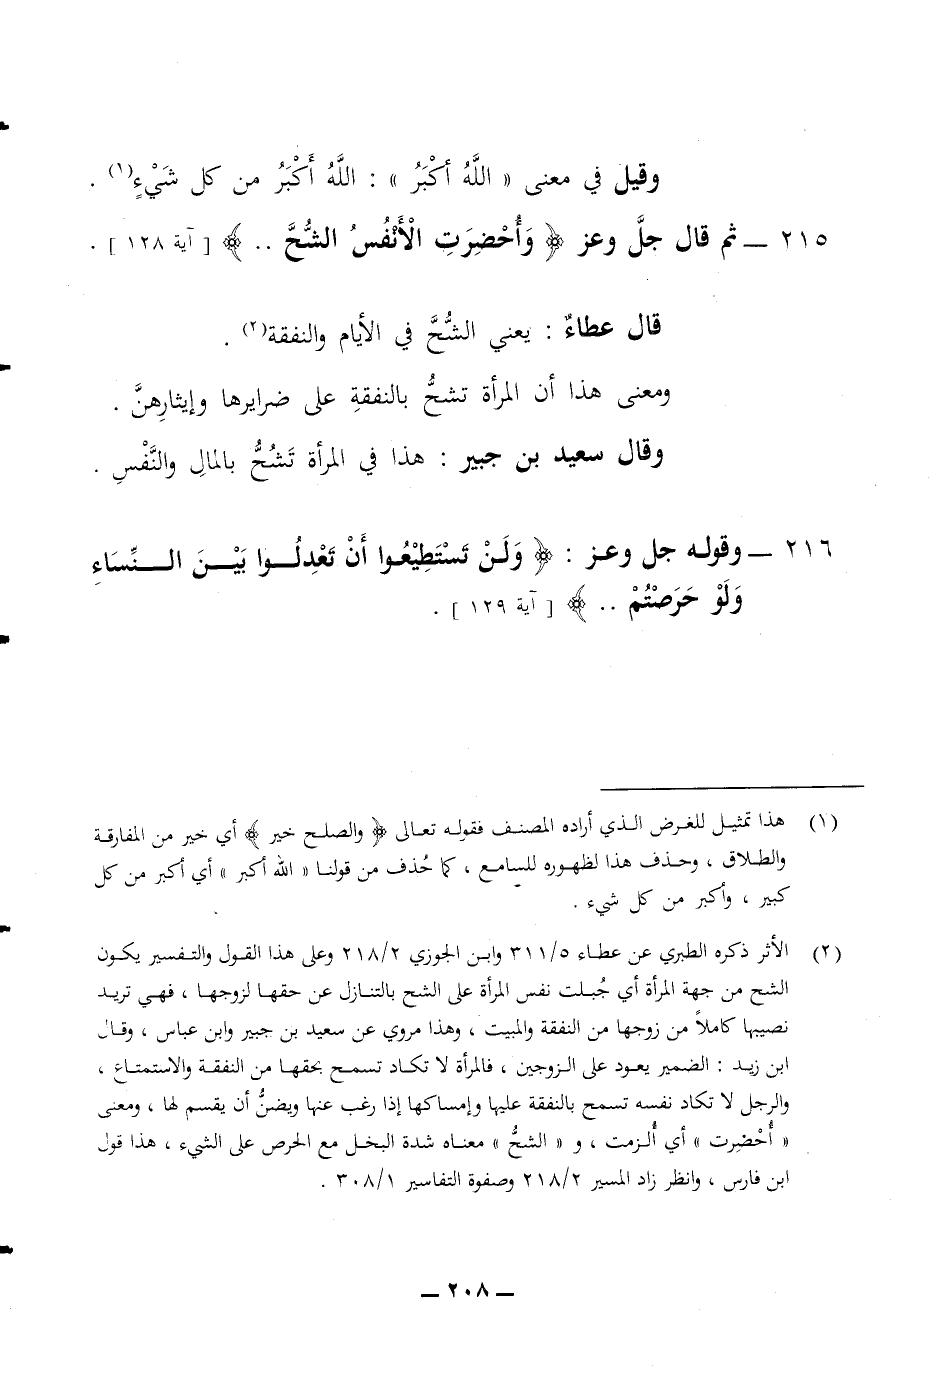 وقيل في معنى « اللَّهُ أكْبَرُ » : اللَّهُ أَكْبَرُ من كل شَيْءٍ(١) .
٢١٥ ــ ثم قال جلَّ وعز ﴿ وَأُحْضِرَتِ الْأَنْفُسُ الشُّحَّ .. ﴾ [ آية ١٢٨ ] .
قال عطاءٌ : يعني الشُّحَّ في الأيام والنفقة(٢) .
ومعنى هذا أن المرأة تشحُّ بالنفقةِ على ضرايرها وإيثارِهنَّ .
وقال سعيد بن جبير : هذا في المرأة تَشُحُّ بالمالِ والنَّفْسِ .
٢١٦ ــ وقوله جل وعز : ﴿ وَلَنْ تَسْتَطِيْعُوا أَنْ تَعْدِلُوا بَيْنَ النِّسَاءِ
وَلَوْ حَرَصْتُمْ .. ﴾ [ آية ١٢٩ ] .
(١) هذا تمثيل للغرض الذي أراده المصنف فقوله تعالى ﴿ والصلح خير ﴾ أي خير من المفارقة
والطلاق ، وحذف هذا لظهوره للسامع ، كما حُذف من قولنا « الله أكبر » أي أكبر من كل
كبير ، وأكبر من كل شيء .
(٢) الأثر ذكره الطبري عن عطاء ٣١١/٥ وابن الجوزي ٢١٨/٢ وعلى هذا القول والتفسير يكون
الشح من جهة المرأة أي جُبلت نفس المرأة على الشح بالتنازل عن حقها لزوجها ، فهي تريد
نصيبها كاملاً من زوجها من النفقة والمبيت ، وهذا مروي عن سعيد بن جبير وابن عباس ، وقال
ابن زيد : الضمير يعود على الزوجين ، فالمرأة لا تكاد تسمح بحقها من النفقة والاستمتاع ،
والرجل لا تكاد نفسه تسمح بالنفقة عليها وإمساكها إذا رغب عنها ويضنُّ أن يقسم لها ، ومعنى
« أُحْضِرت » أي أُلزمت ، و « الشحُّ » معناه شدة البخل مع الحرص على الشيء ، هذا قول
ابن فارس ، وانظر زاد المسير ٢١٨/٢ وصفوة التفاسير ٣٠٨/١ .
ــ ٢٠٨ ــ